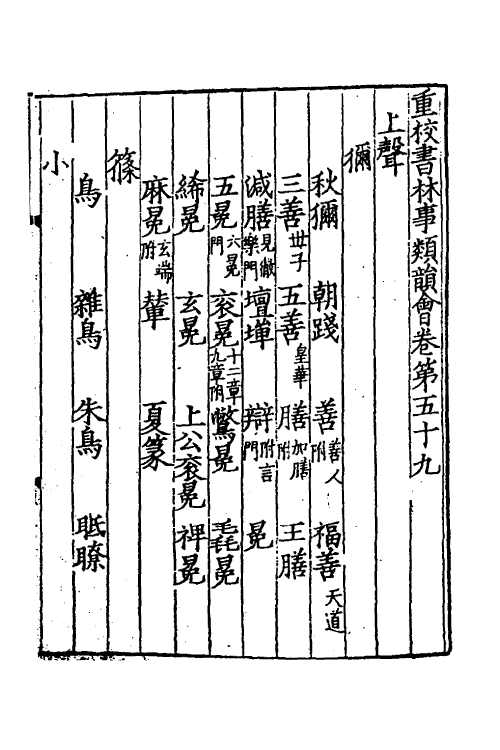 重校書林事類韻會卷第五十九
上聲
獮
秋獮 朝踐 善 善人附 福善 天道
三善 世子 五善 皇華 膳 加膳附 王膳
減膳 見徹樂門 壇墠 辯 附言門 冕
五冕 六冕門 衮冕 十二章九章附 鷩冕 毳冕
絺冕 玄冕 上公衮冕 裨冕
麻冕 玄端附 輦 夏篆
篠
鳥 雜鳥 朱鳥 眡瞭
小